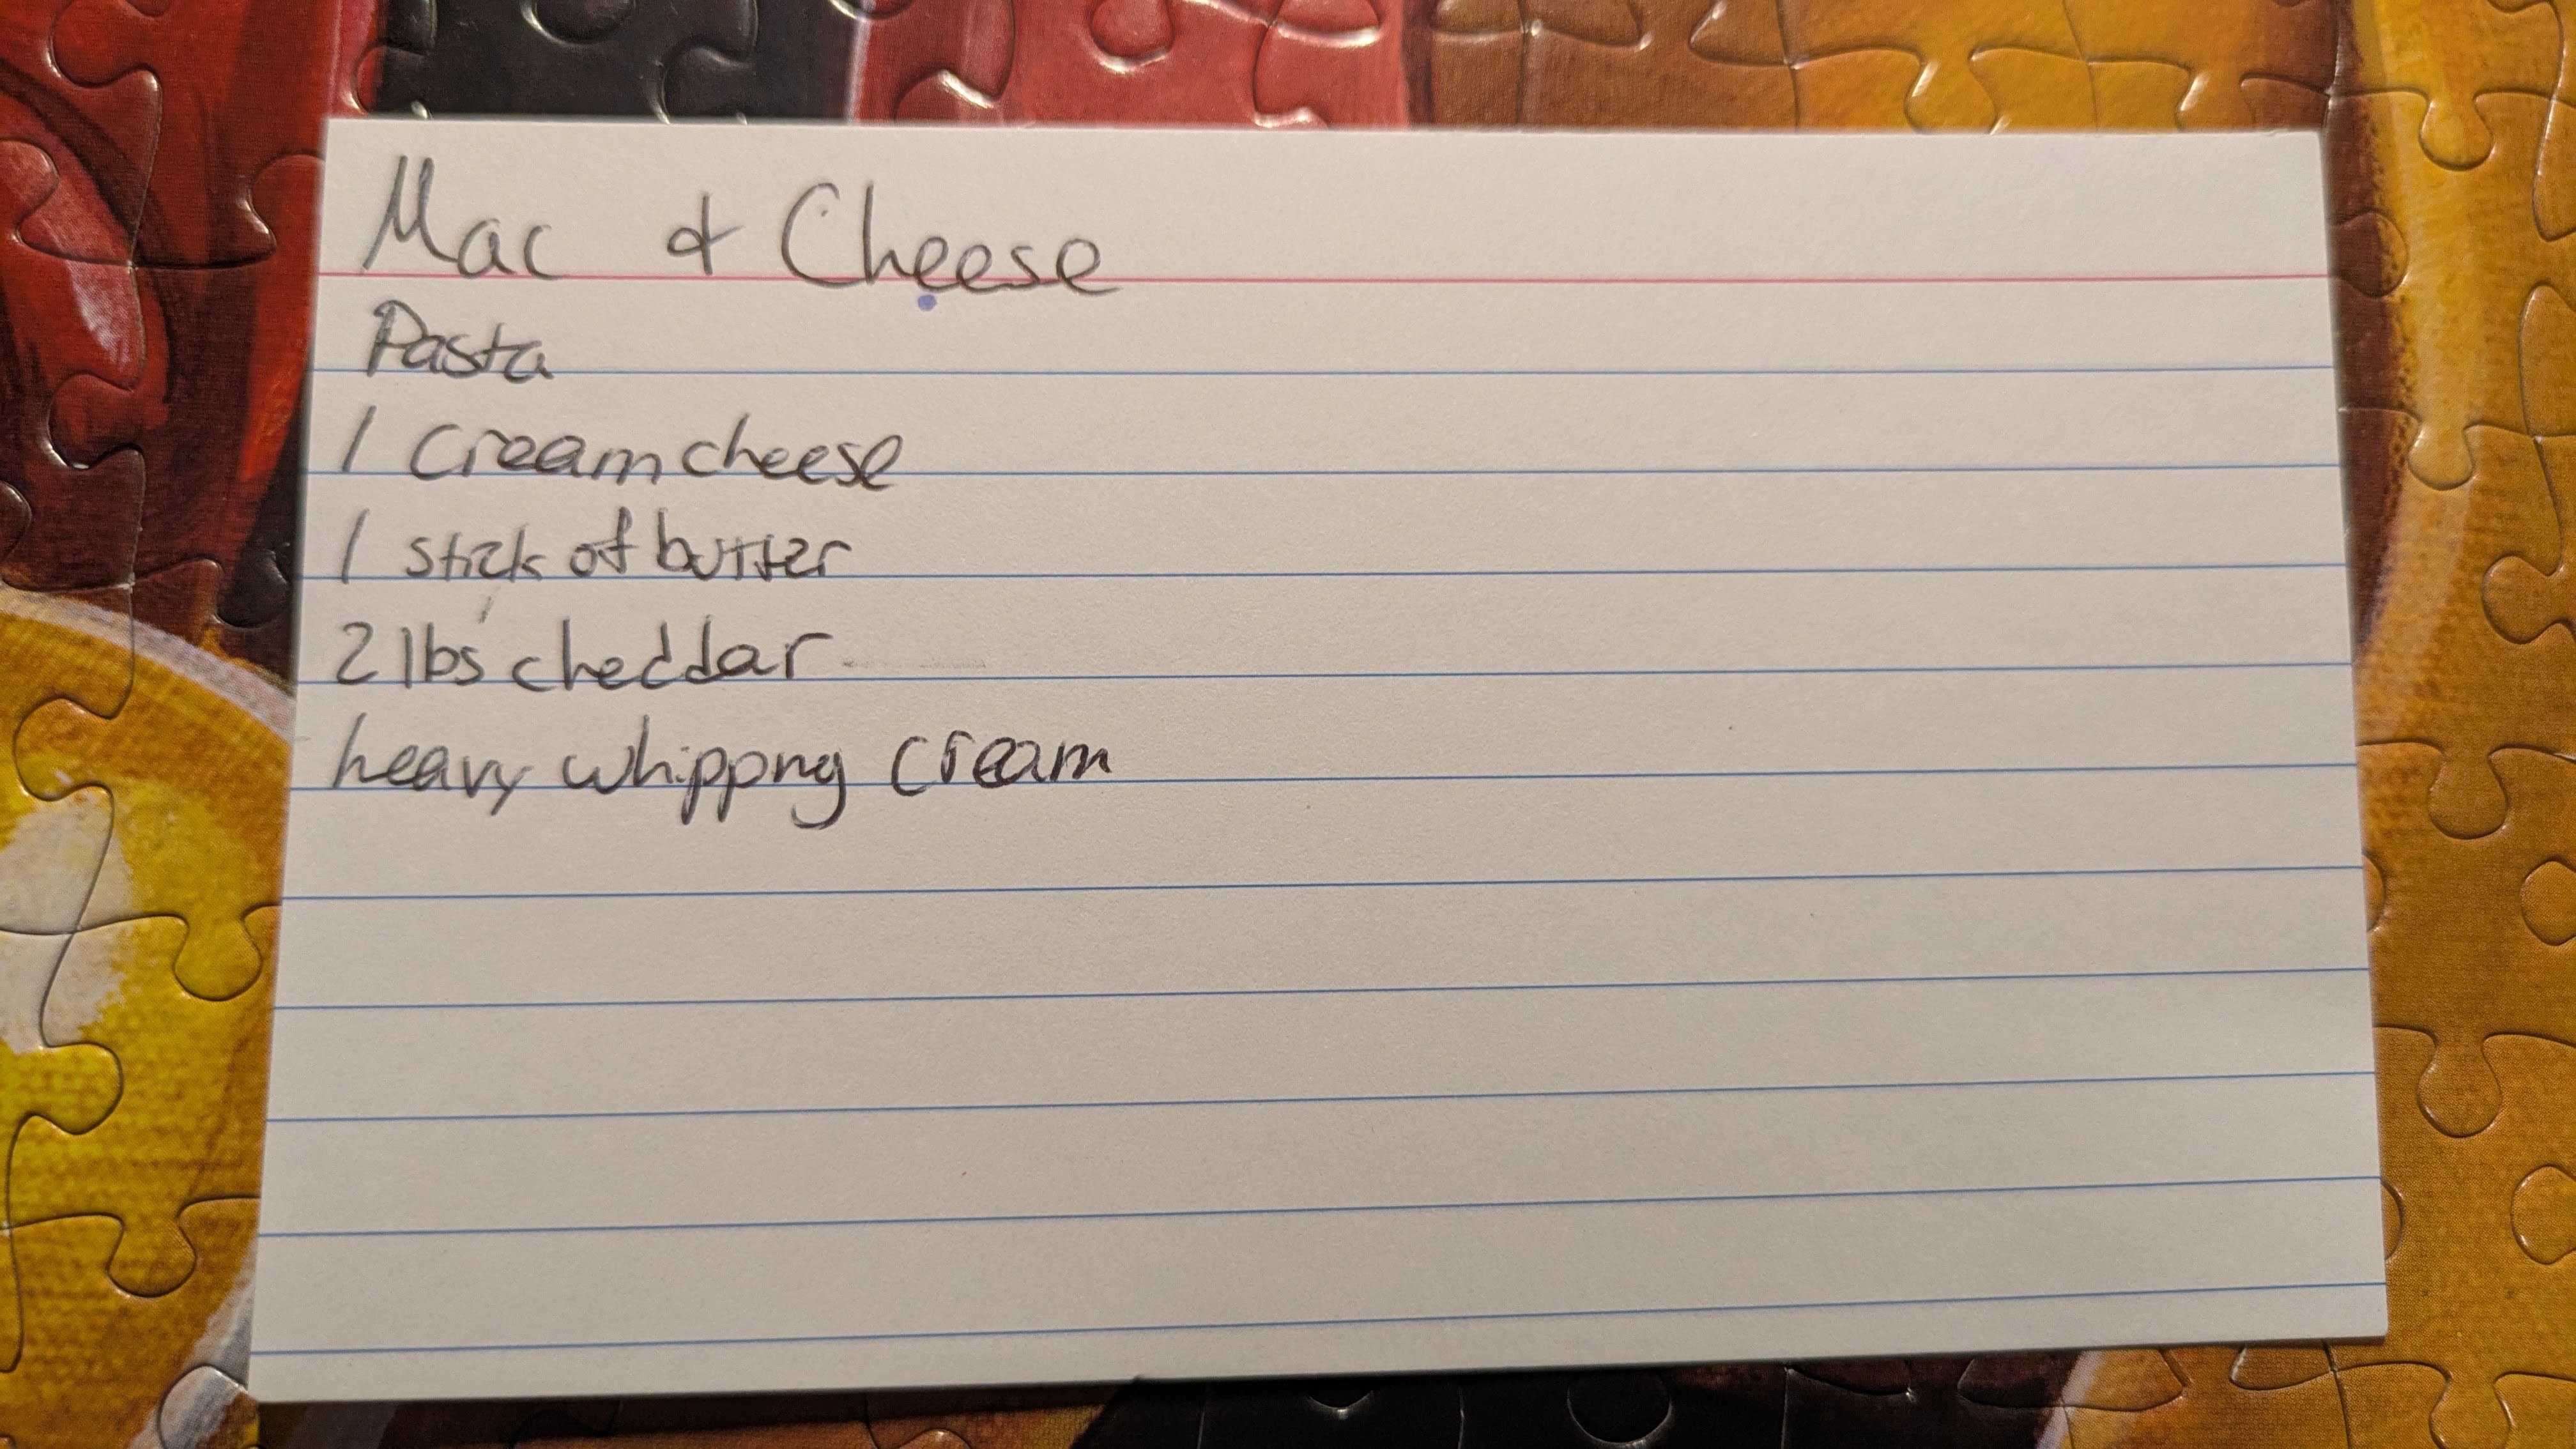 Mac & Cheese
Pasta
1 cream cheese
1 stick of butter
2 lbs cheddar
heavy whippng cream